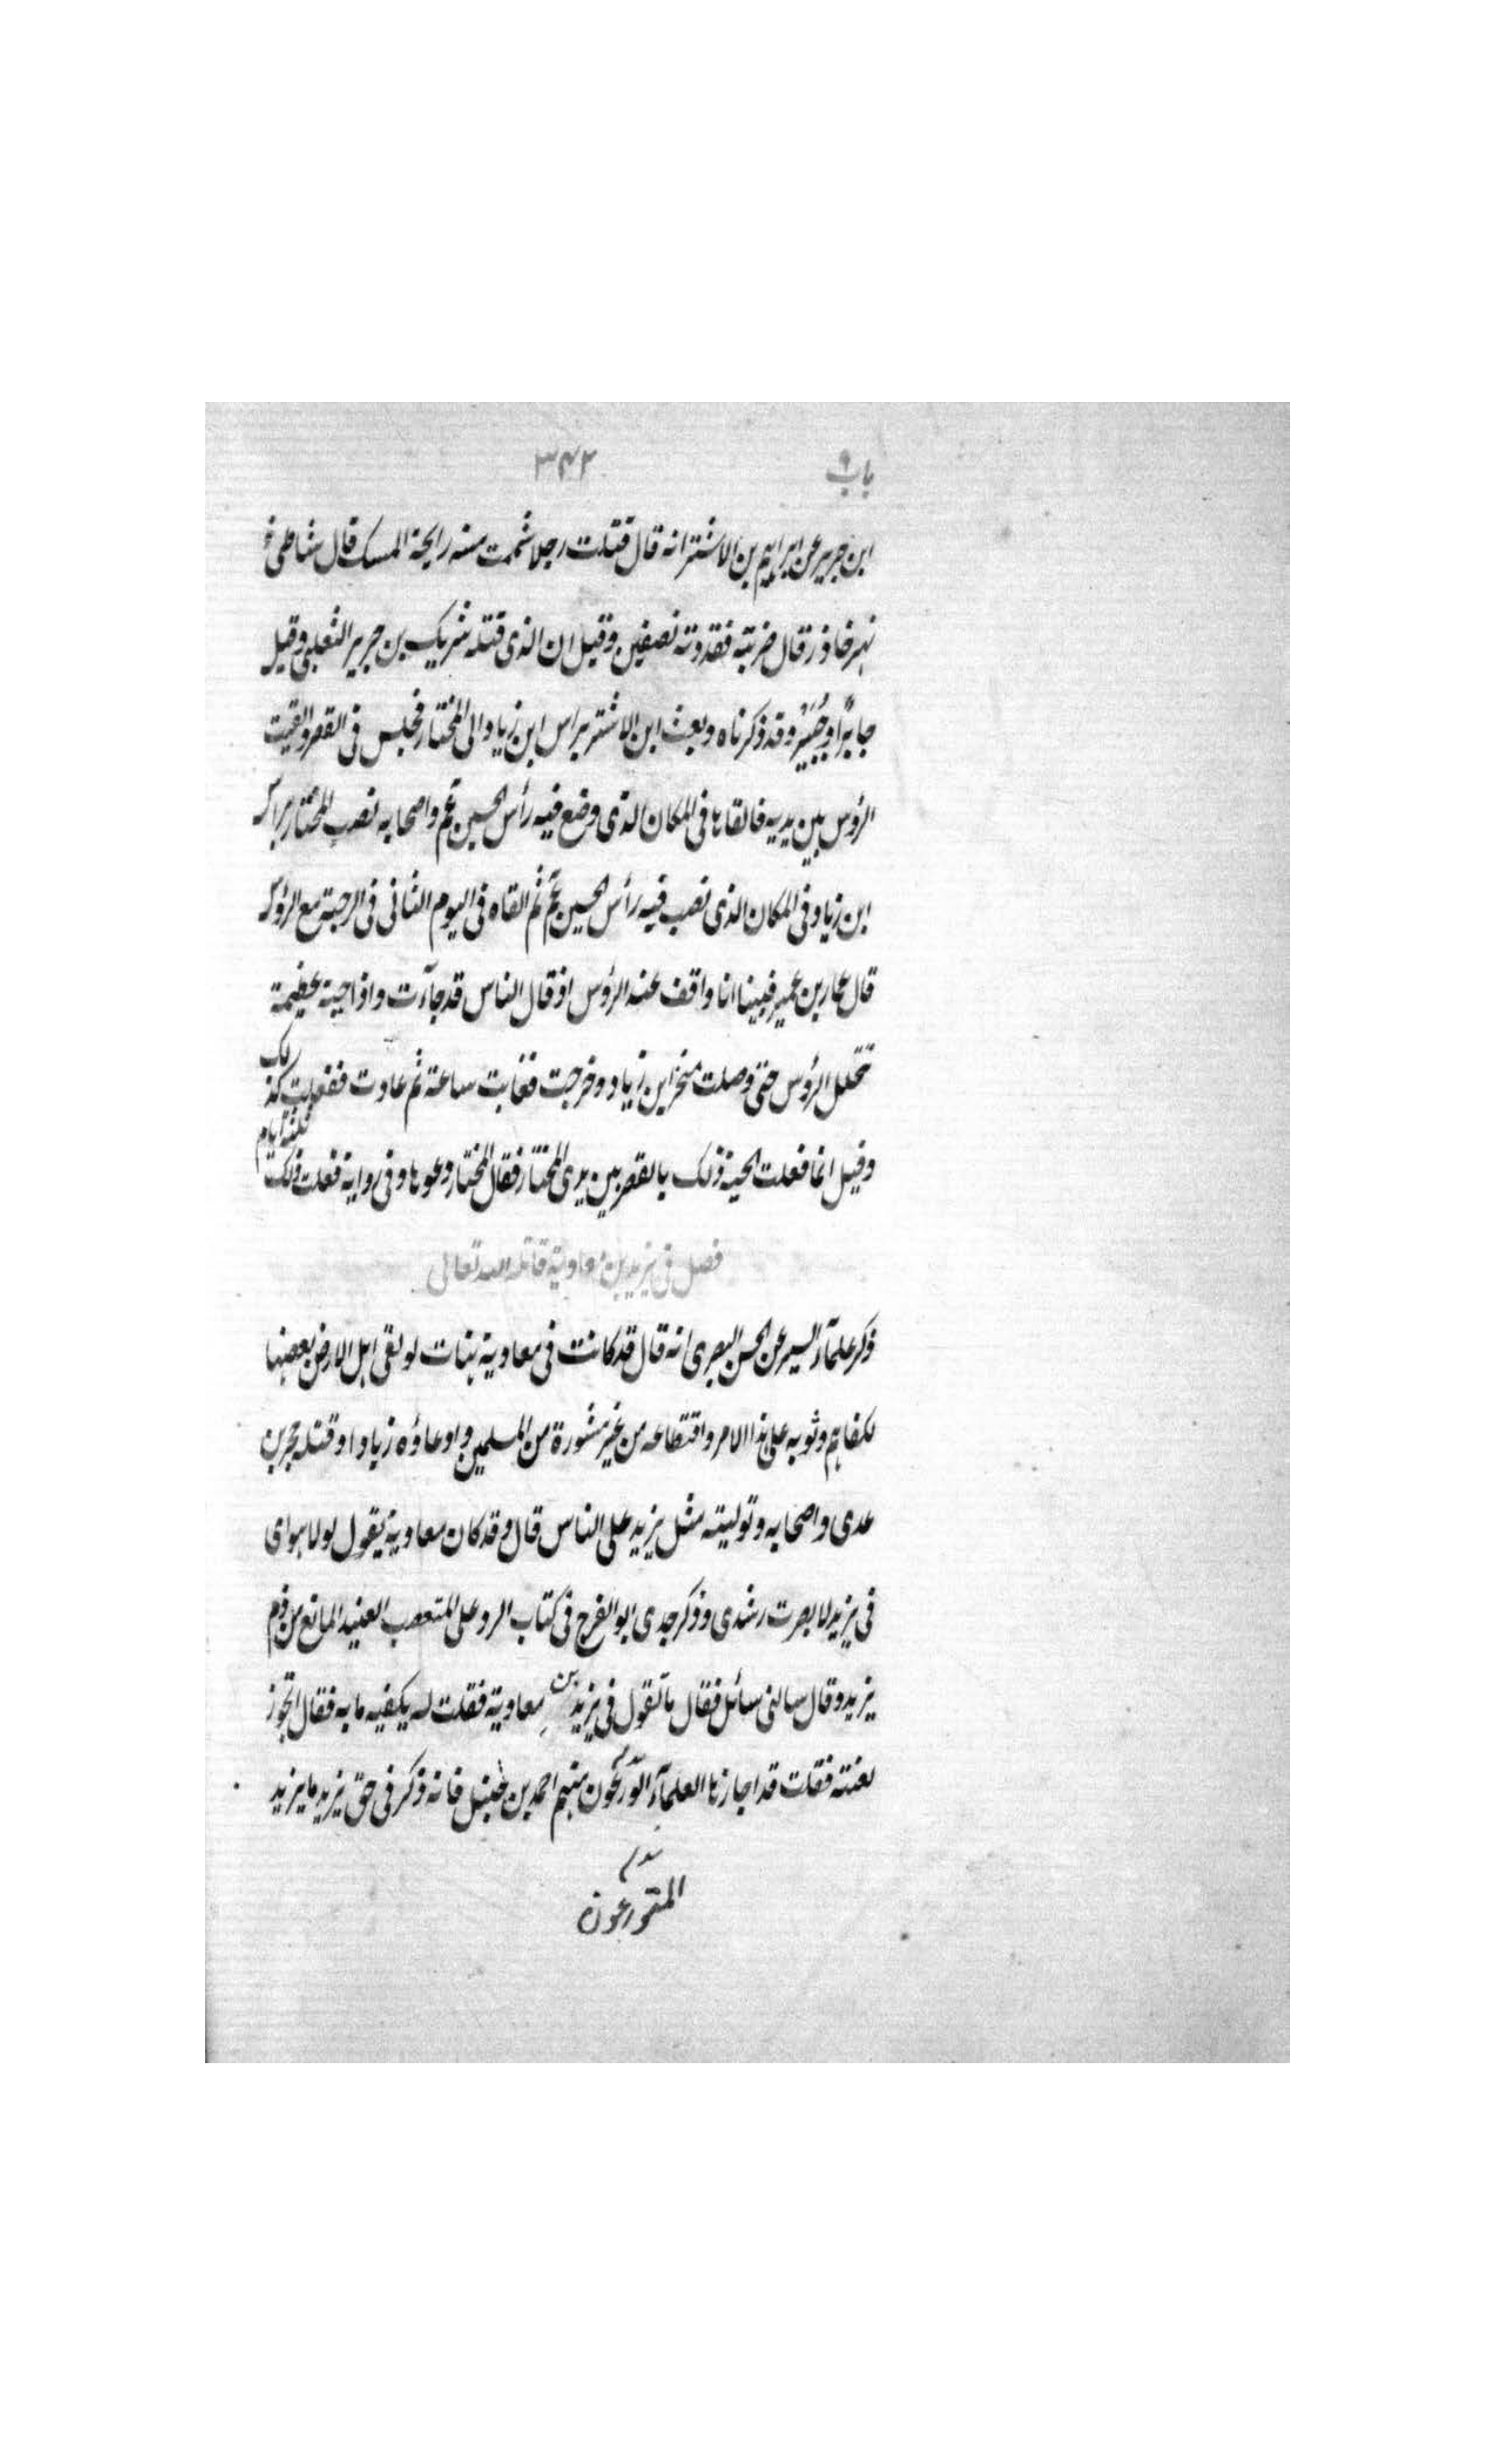 باب ٩ ٣٤٢
ابن جرير عن ابراهيم بن الاشتر انه قال قتلت رجلا شممت منه رايحة المسك قال شاطئ
نهر خاذر قال ضربته فقددته نصفين وقيل ان الذى قتله شريك بن جرير الثعلبى وقيل
جابر وقد ذكرناه وبعث ابن الاشتر براس ابن زياد الى المختار فجلس فى القصر والقيت
الرؤس بين يديه فالقاها فى المكان الذى وضع فيه رأس الحسين عم واصحابه نصب المختار براس
ابن زياد فى المكان الذى نصب فيه رأس الحسين عم ثم القاه فى اليوم الثانى فى الرحبة مع الرؤس
قال عمار بن عمير فبينا انا واقف عند الرؤس اذ قال الناس قد جاءت واذا حية عظيمة
تخلل الرؤس حتى وصلت منخر ابن زياد وخرجت فغابت ساعة ثم عادت ففعلت كذلك
وقيل انما فعلت الحية ذلك بالقصر بين يدى المختار فقال المختار دعوها وفى رواية فعلت ذلك ثلثة ايام
فصل فى يزيد بن معاوية قاتله الله تعالى
ذكر علمآء السير عن الحسن البصرى انه قال قد كانت فى معاوية هنات لو لقى اهل الارض ببعضها
لكفاهم وثوبه على هذا الامر واقتطاعه من غير مشورة من المسلمين وادعاؤه زيادا وقتله حجر بن
عدى واصحابه وتوليته مثل يزيد على الناس قال وقد كان معاوية يقول لولا هواى
فى يزيد لابصرت رشدى وذكر جدى ابو الفرج فى كتاب الرد على المتعصب العنيد المانع من ذم
يزيد وقال سالنى سائل فقال ما تقول فى يزيد بن معاوية فقلت له يكفيه ما به فقال اتجوز
لعنته فقلت قد اجازها العلمآء الورعون منهم احمد بن حنبل فانه ذكر فى حق يزيد ما يزيد
المتورعون